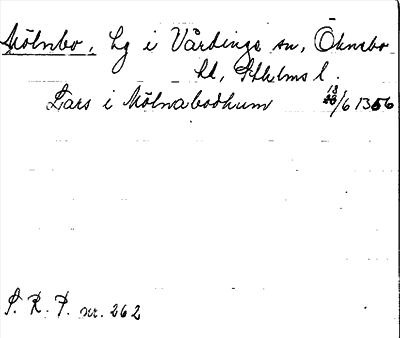 Mölnbo, Lg i Vårdinge sn, Öknebo
hd, Sthlms l.
Lars i Mölnabodhum 13/6 1356
S. R. P. nr. 262